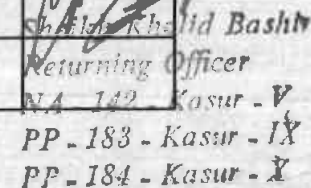 Sheikh Khalid Bashir
Returning Officer
NA - 142 - Kasur - V
PP - 183 - Kasur - IX
PP - 184 - Kasur - X